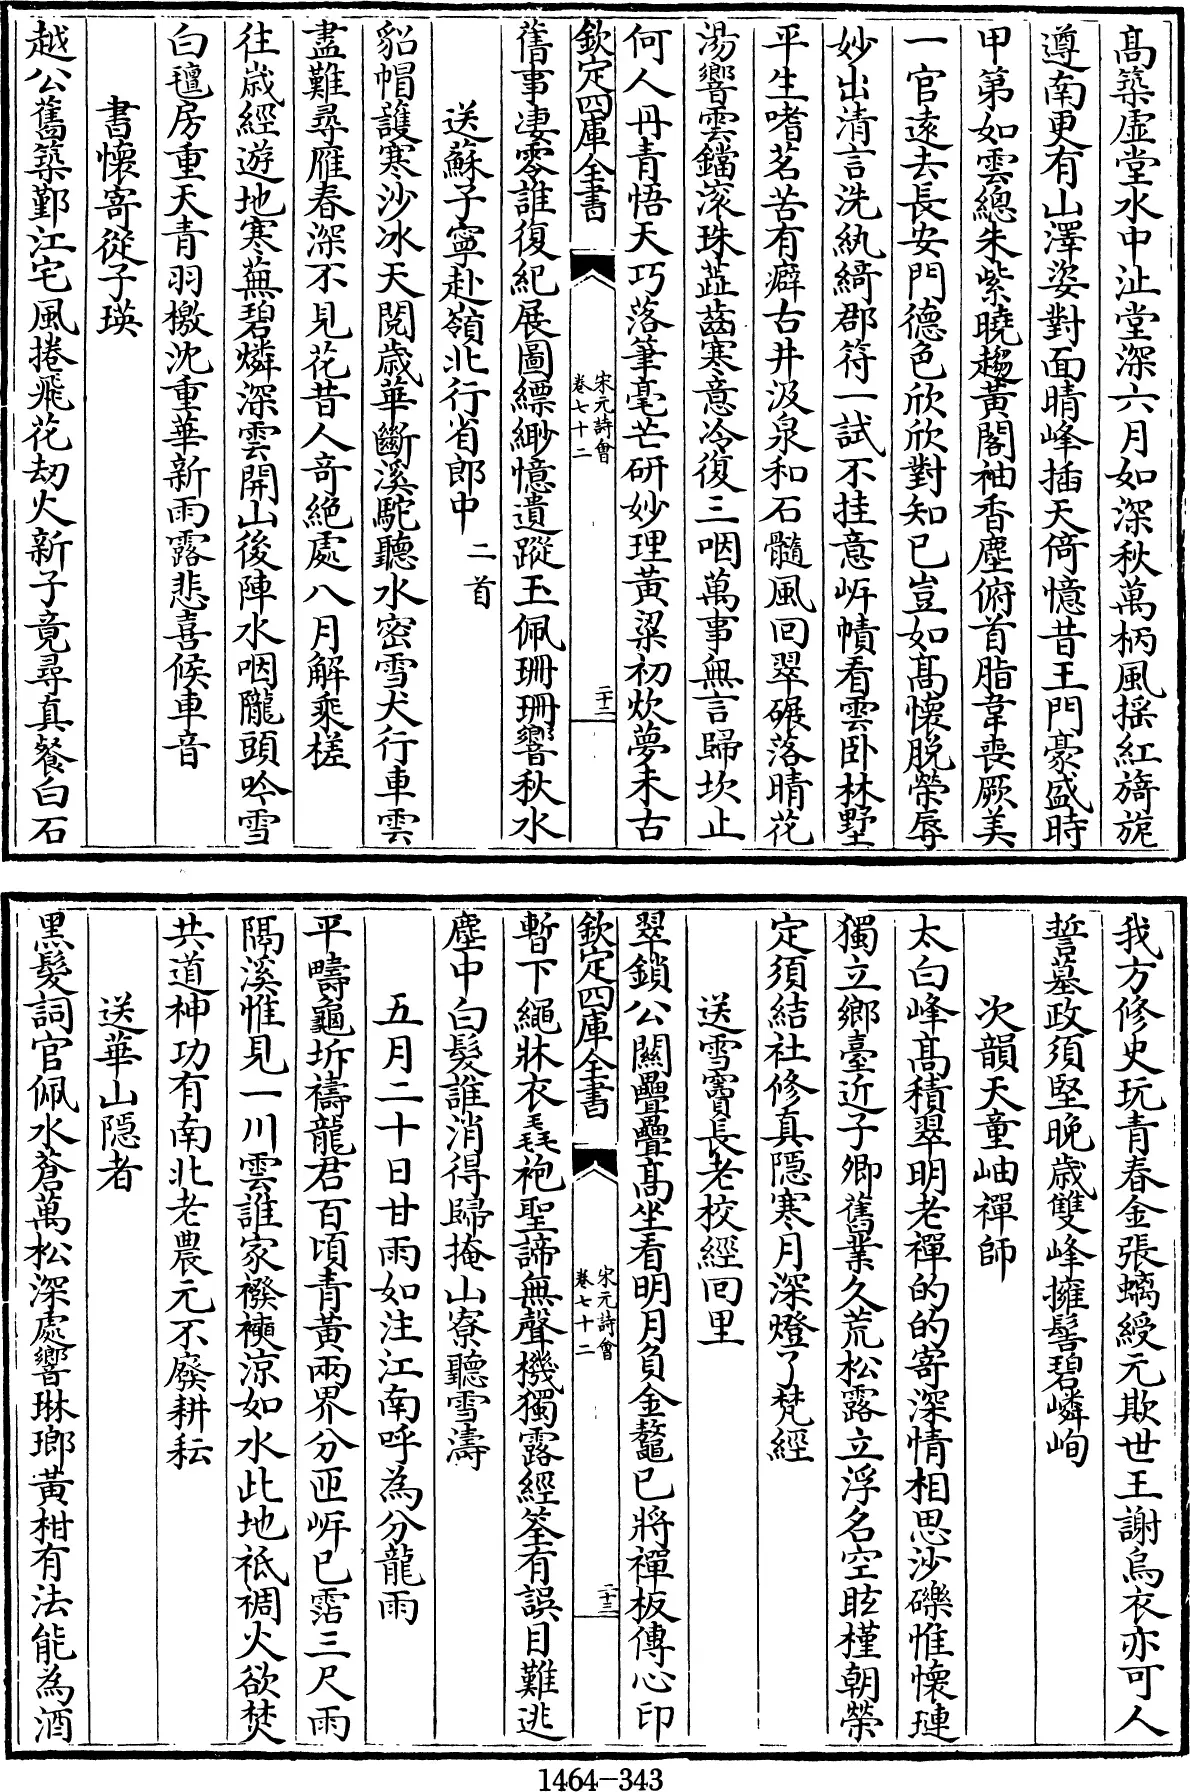 髙築虚堂水中沚堂深六月如深秋萬柄風揺紅旖旎
遵南更有山澤姿對面晴峰插天倚憶昔王門豪盛時
甲第如雲總朱紫曉趨黃閣袖香塵俯首脂韋喪厥美
一官逺去長安門徳色欣欣對知已豈如髙懷脱榮辱
妙出清言洗紈綺郡符一試不挂意岸幘看雲卧林墅
平生嗜茗苦有癖古井汲泉和石髓風回翠碾落晴花
湯響雲鐺滚珠蘂齒寒意冷復三咽萬事無言歸坎止
何人丹青悟天巧落筆毫芒研妙理黃粱初炊夢未古
欽定四庫全書
宋元詩會
卷七十二
二十二
舊事凄零誰復紀展圖縹緲憶遺蹤玉佩珊珊響秋水
送蘇子寧赴嶺北行省郎中 二首
貂帽護寒沙冰天閲歳華斷溪駝聽水密雪犬行車雲
盡難尋雁春深不見花昔人竒絶處八月解乘槎
往歳經遊地寒蕪碧燐深雲開山後陣水咽隴頭吟雪
白氊房重天青羽檄沈重華新雨露悲喜候車音
書懷寄從子瑛
越公舊築鄞江宅風捲飛花刧火新子竟尋真餐白石
我方修史玩青春金張螭綬元欺世王謝烏衣亦可人
誓墓政須堅晚歳雙峰擁髻碧嶙峋
次韻天童岫禪師
太白峰髙積翠明老禪的的寄深情相思沙礫惟懷璉
獨立鄉臺近子卿舊業久荒松露立浮名空眩槿朝榮
定須結社修真隠寒月深燈了梵經
送雪竇長老校經回里
翠鎖公闗疊疊髙坐看明月負金鼇已將禪板傳心印
欽定四庫全書
宋元詩會
卷七十二
二十三
暫下繩牀衣毳袍聖諦無聲機獨露經筌有誤目難逃
塵中白髮誰消得歸掩山寮聽雪濤
五月二十日甘雨如注江南呼為分龍雨
平疇龜坼禱龍君百頃青黃兩界分匝岸已霑三尺雨
隔溪惟見一川雲誰家襏襫涼如水此地袛裯火欲焚
共道神功有南北老農元不廢耕耘
送華山隠者
黒髮詞官佩水蒼萬松深處響琳瑯黃柑有法能為酒
1464-343